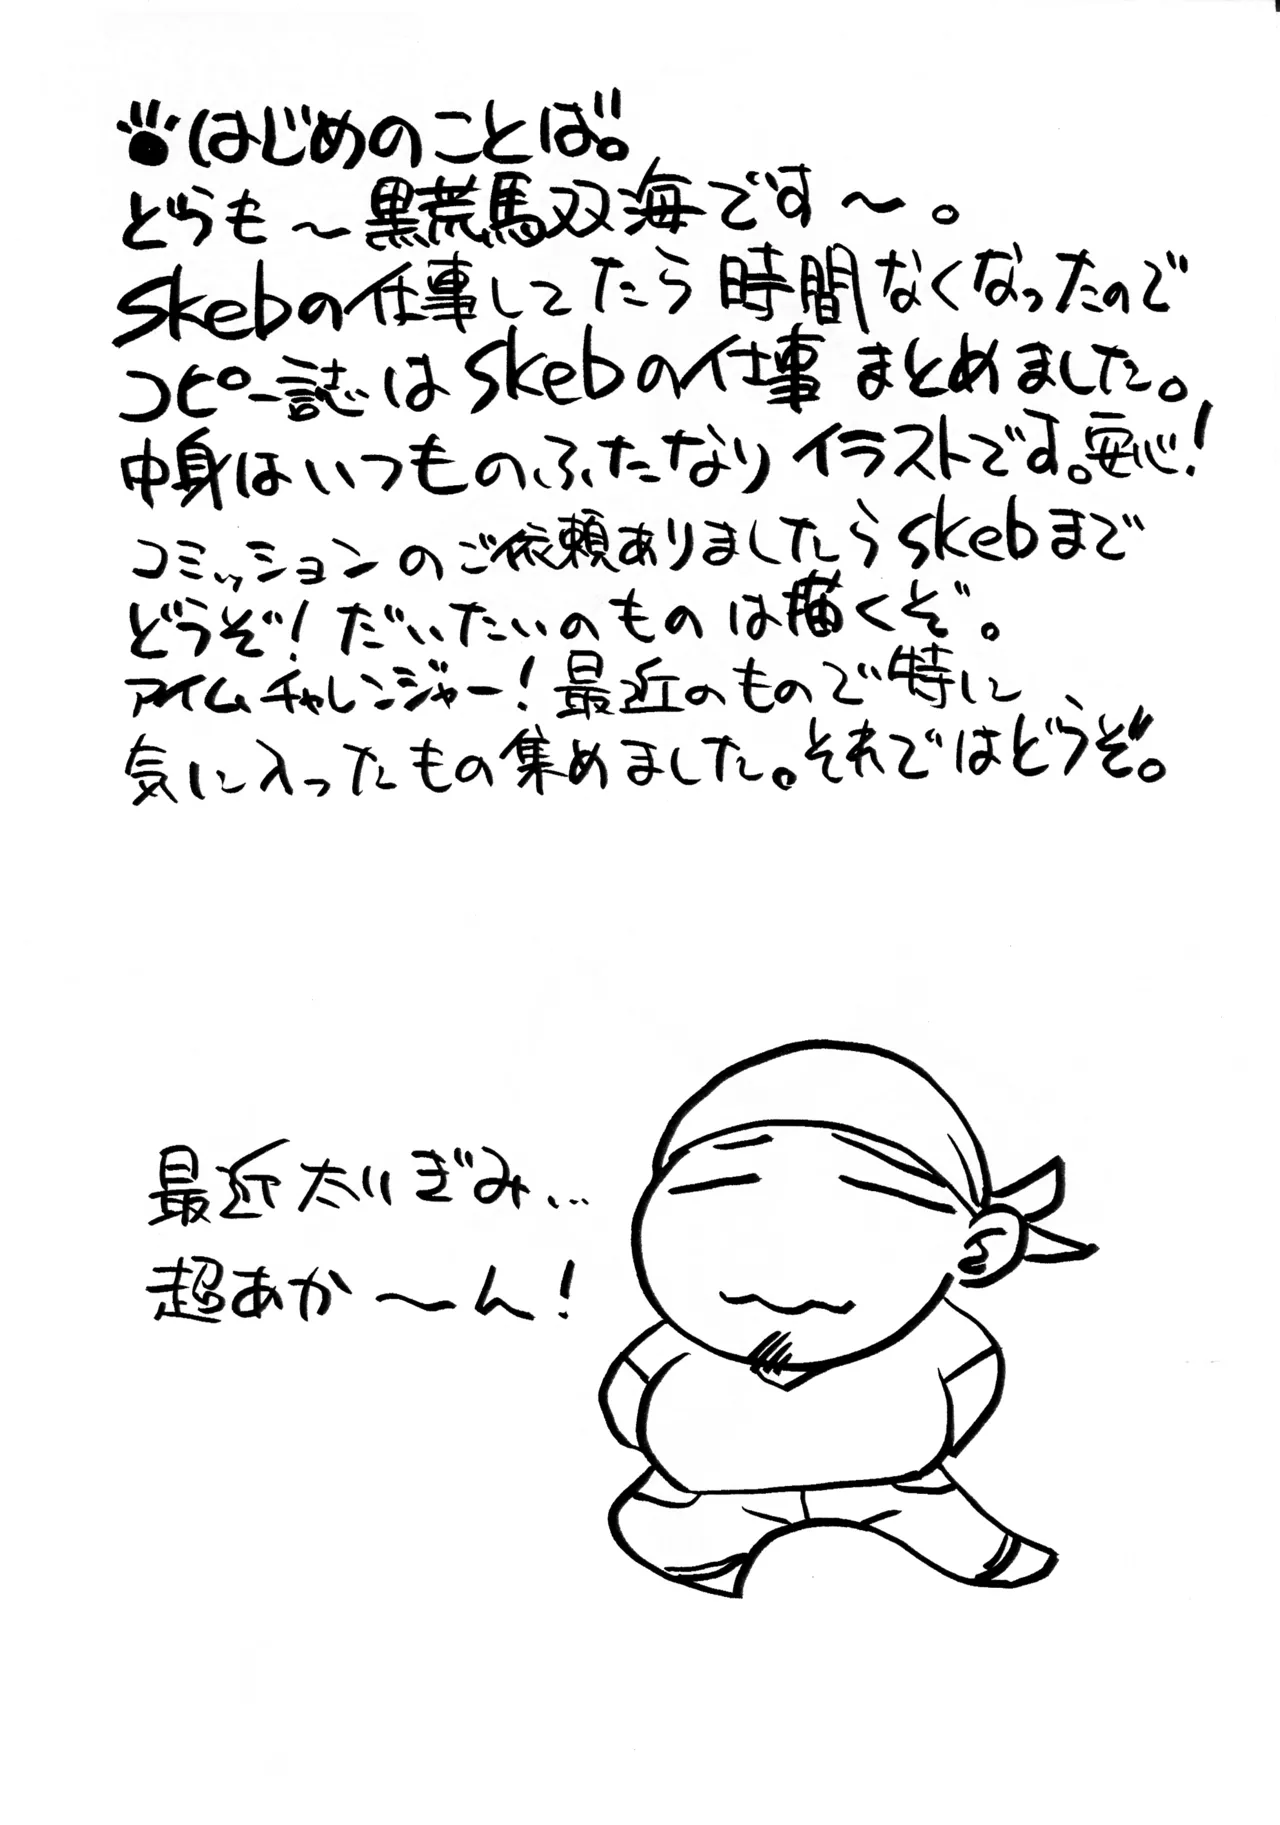 はじめのことば。
どうも～黒荒馬双海です～。
skebの仕事してたら時間なくなったので
コピー誌はskebの仕事まとめました。
中身はいつものふたなりイラストです。安心!
コミッションのご依頼ありましたらskebまで
どうぞ!だいたいのものは描くぞ。
アイムチャレンジャー!最近のもので特に
気に入ったもの集めました。それではどうぞ。
最近太りぎみ…
超あか～ん!